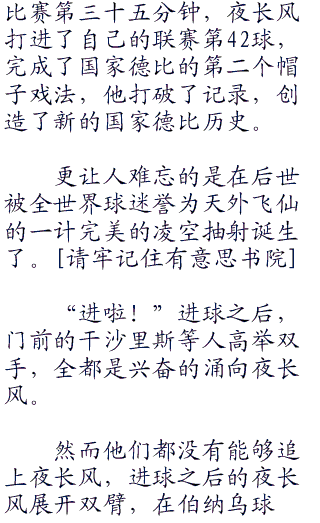 比赛第三十五分钟，夜长风
打进了自己的联赛第42球，
完成了国家德比的第二个帽
子戏法，他打破了记录，创
造了新的国家德比历史。
更让人难忘的是在后世
被全世界球迷誉为天外飞仙
的一计完美的凌空抽射诞生
了。[请牢记住有意思书院]
“进啦！”进球之后，
门前的干沙里斯等人高举双
手，全都是兴奋的涌向夜长
风。
然而他们都没有能够追
上夜长风，进球之后的夜长
风展开双臂，在伯纳乌球